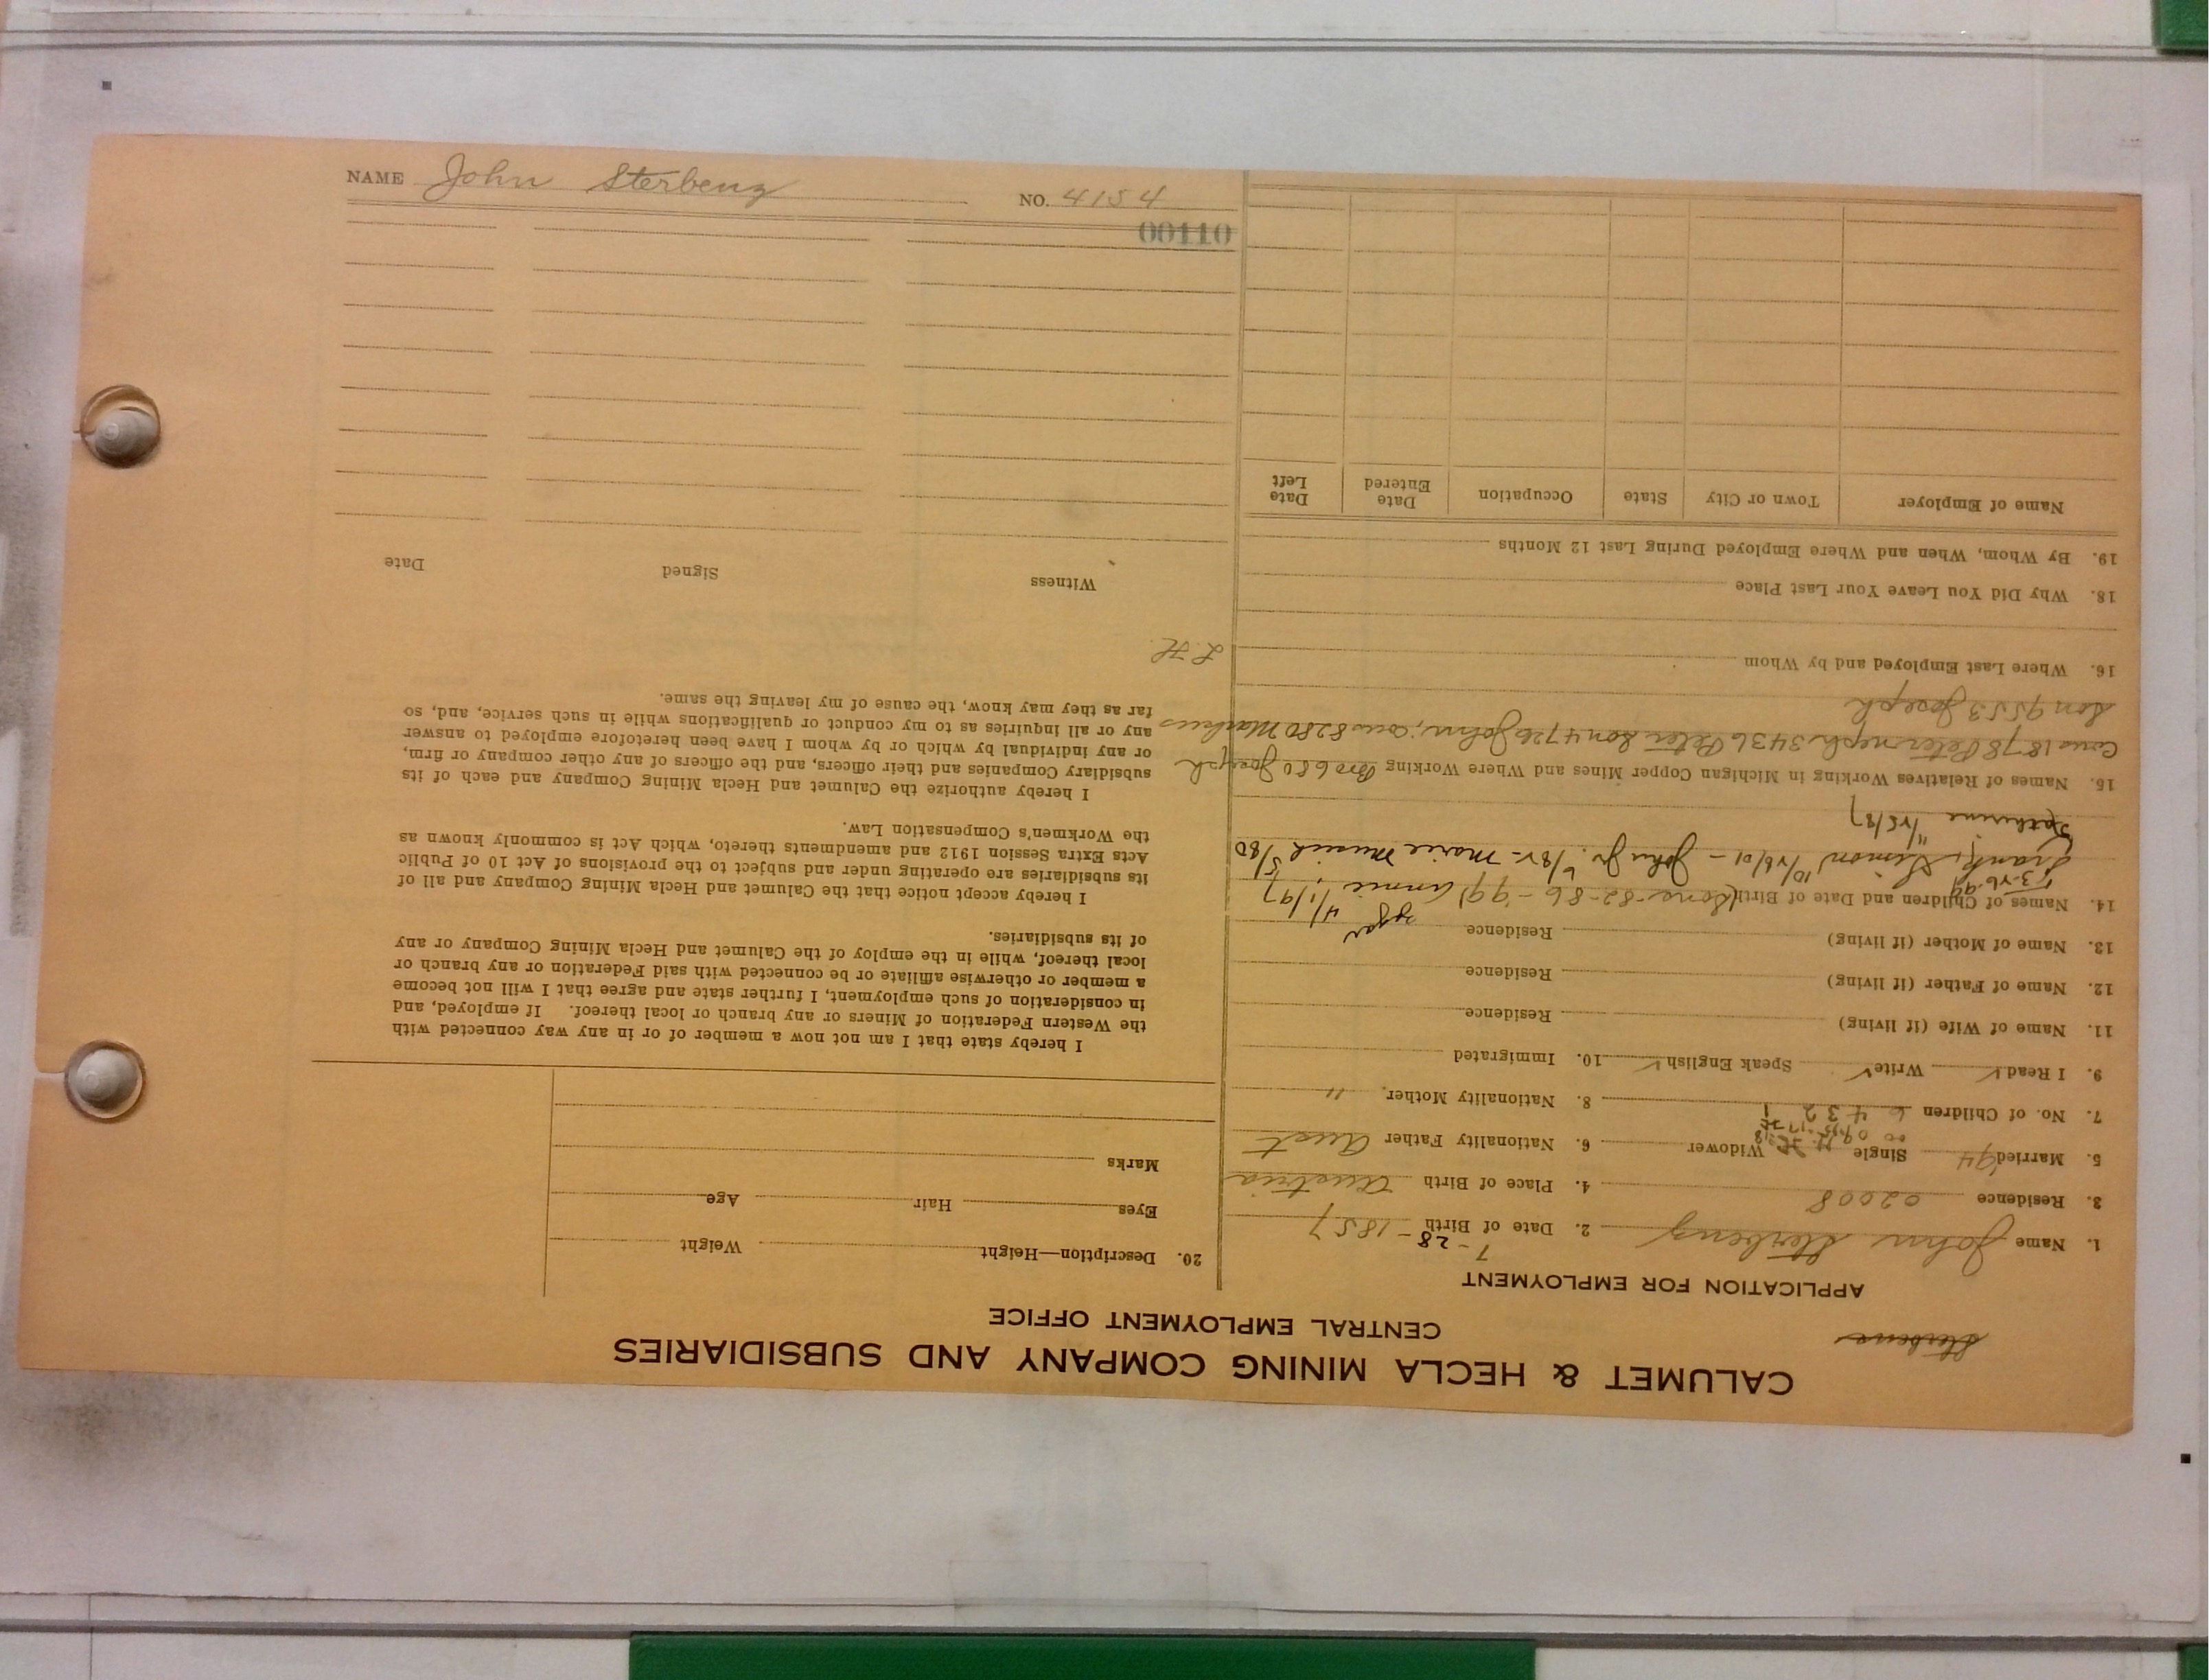 NAME John Sterbenz NO. 4154
00110
CALUMET & HECLA MINING COMPANY AND SUBSIDIARIES
CENTRAL EMPLOYMENT OFFICE
APPLICATION FOR EMPLOYMENT
1. Name John Sterbenz 2. Date of Birth 7-28-1857
3. Residence 02008 4. Place of Birth Austria
5. Married '94 Single Widower 6. Nationality Father Aust
7. No. of Children 6 4 3 2 1 8. Nationality Mother. "
9. I Read ✓ Write ✓ Speak English ✓ 10. Immigrated
11. Name of Wife (if living) Residence
12. Name of Father (if living) Residence
13. Name of Mother (if living) Residence
14. Names of Children and Date of Birth (Sons -82-86-99) Annie 4/1/97
Frank, Simon - John Jr. - Marie Musich 5/80
Katherine 11/25/87
15. Names of Relatives Working in Michigan Copper Mines and Where Working Bro 680 Joseph
Cous 1878 Peter neph. 3436 Peter Son 4726 John; cous 8280 Markus
Son 9553 Joseph
16. Where Last Employed and by Whom
18. Why Did You Leave Your Last Place
19. By Whom, When and Where Employed During Last 12 Months
Name of Employer Town or City State Occupation Date Entered Date Left
20. Description—Height Weight
Eyes Hair Age
Marks
I hereby state that I am not now a member of or in any way connected with
the Western Federation of Miners or any branch or local thereof. If employed, and
in consideration of such employment, I further state and agree that I will not become
a member or otherwise affiliate or be connected with said Federation or any branch or
local thereof, while in the employ of the Calumet and Hecla Mining Company or any
of its subsidiaries.
I hereby accept notice that the Calumet and Hecla Mining Company and all of
its subsidiaries are operating under and subject to the provisions of Act 10 of Public
Acts Extra Session 1912 and amendments thereto, which Act is commonly known as
the Workmen's Compensation Law.
I hereby authorize the Calumet and Hecla Mining Company and each of its
subsidiary Companies and their officers, and the officers of any other company or firm,
or any individual by which or by whom I have been heretofore employed to answer
any or all inquiries as to my conduct or qualifications while in such service, and, so
far as they may know, the cause of my leaving the same.
L.H.
Witness Signed Date